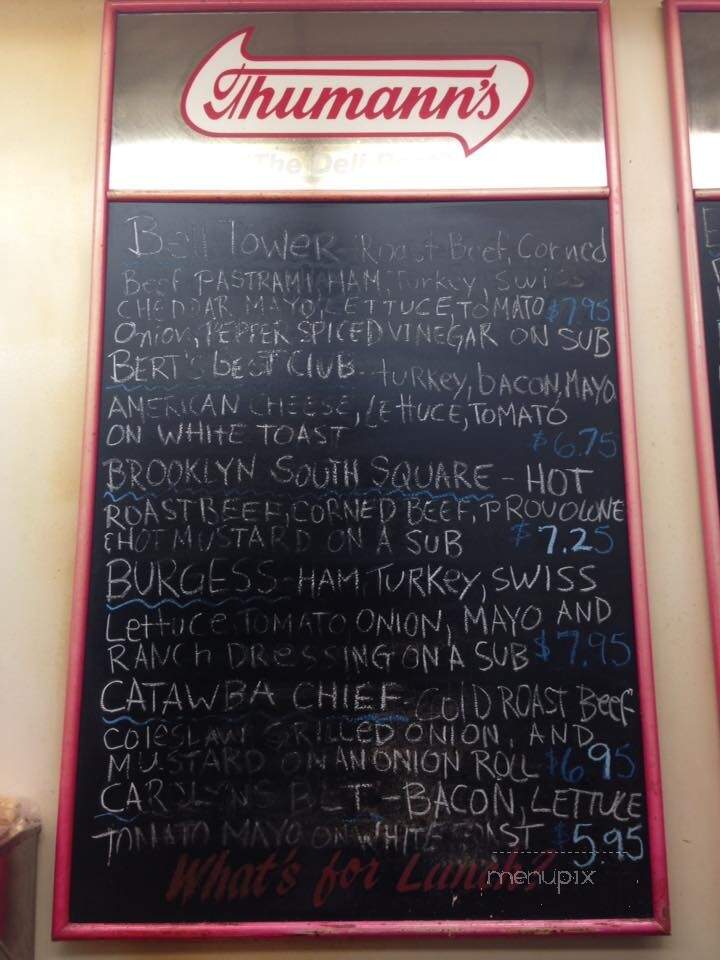 Thumann's
The Deli
Bell Tower - Roast Beef, Corned
Beef PASTRAMI HAM, Turkey, Swiss
CHEDDAR, MAYO, LETTUCE, TOMATO $7.95
Onion, PEPPER SPICED VINEGAR ON SUB
BERT'S beST CLUB - tURKey, bACON, MAYO
AMERICAN CHEESE, LETTUCE, TOMATO
ON WHITE TOAST $6.75
BROOKLYN SOUTH SQUARE - HOT
ROAST BEEF, CORNED BEEF, PROVOLONE
& HOT MUSTARD ON A SUB $7.25
BURGESS - HAM, TURKEY, SWISS
Lettuce TOMATO ONION, MAYO AND
RANCh DReSSING ON A SUB $7.95
CATAWBA CHIEF - COLD ROAST Beef
COleSLAW GRILLeD ONION, AND
MUSTARD ON AN ONION ROLL $6.95
CAROLYNS BLT - BACON, LETTUCE
TOMATO MAYO ON WHITE TOAST $5.95
What's for Lunch?
menupix